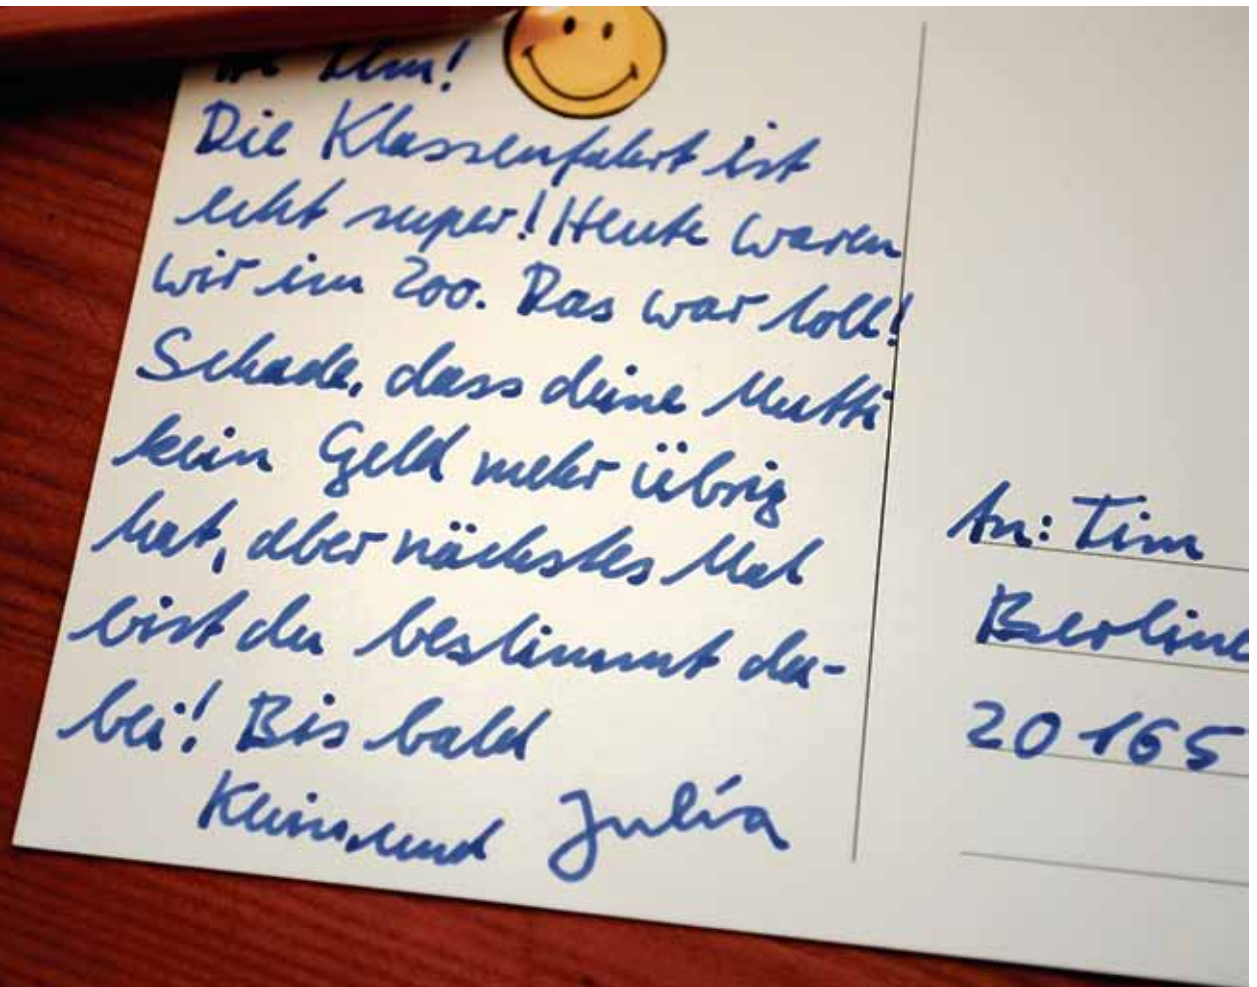 Tim!
Die Klassenfahrt ist
echt super! Heute waren
wir im Zoo. Das war toll!
Schade, dass deine Mutti
kein Geld mehr übrig
hat, aber nächstes Mal
bist du bestimmt da-
bei! Bis bald
und Julia
An: Tim
Berline
20165